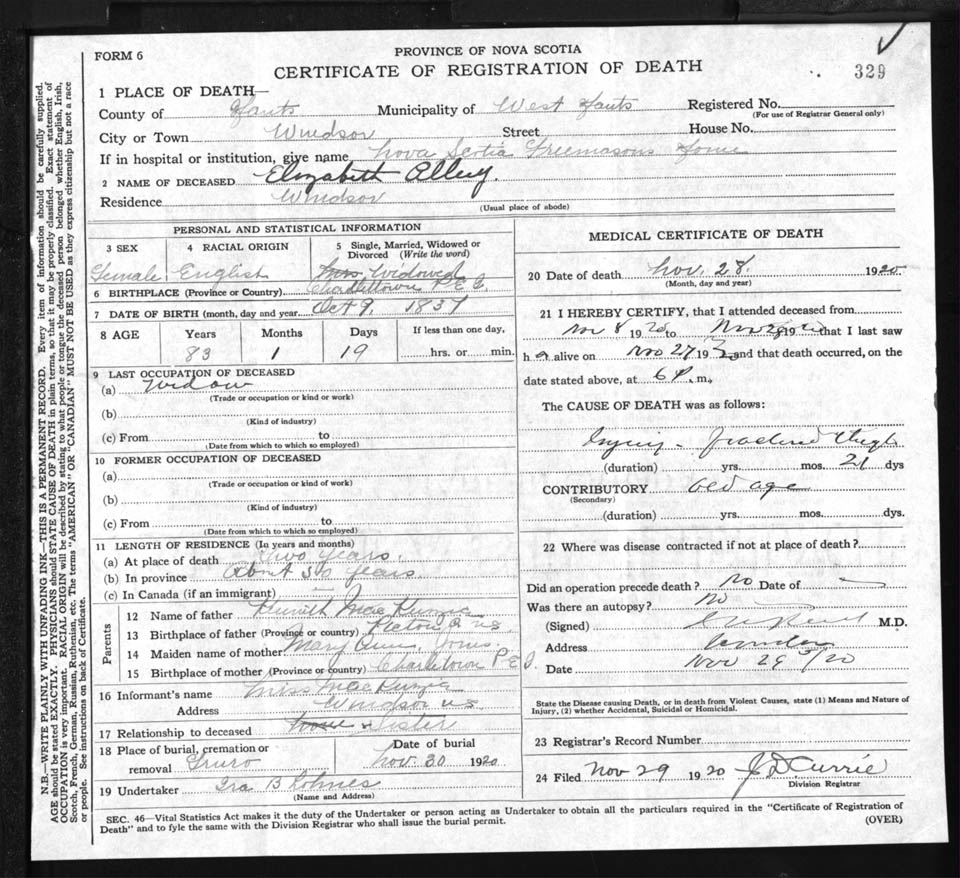 FORM 6
PROVINCE OF NOVA SCOTIA
CERTIFICATE OF REGISTRATION OF DEATH
329
1 PLACE OF DEATH—
County of Hants Municipality of West Hants Registered No.
(For use of Registrar General only)
City or Town Windsor Street House No.
If in hospital or institution, give name Nova Scotia Freemasons Home
2 NAME OF DECEASED Elizabeth Alley.
Residence Windsor
(Usual place of abode)
PERSONAL AND STATISTICAL INFORMATION
3 SEX 4 RACIAL ORIGIN 5 Single, Married, Widowed or Divorced (Write the word)
Female English Widowed
6 BIRTHPLACE (Province or Country) Charlottetown P.E.I.
7 DATE OF BIRTH (month, day and year) Oct 9, 1837
8 AGE Years Months Days If less than one day,
83 1 19 hrs. or min.
9 LAST OCCUPATION OF DECEASED
(a) Widow
(Trade or occupation or kind or work)
(b)
(Kind of industry)
(c) From to
(Date from which to which so employed)
10 FORMER OCCUPATION OF DECEASED
(a)
(Trade or occupation or kind of work)
(b)
(Kind of industry)
(c) From to
(Date from which to which so employed)
11 LENGTH OF RESIDENCE (In years and months)
(a) At place of death two years.
(b) In province About 50 years
(c) In Canada (if an immigrant)
Parents
12 Name of father Kenneth MacKenzie
13 Birthplace of father (Province or country) Pictou N.S.
14 Maiden name of mother Mary Ann Jones
15 Birthplace of mother (Province or country) Charlottetown P.E.I.
16 Informant's name Miss MacKenzie
Address Windsor N.S.
17 Relationship to deceased Sister
18 Place of burial, cremation or removal Truro Date of burial Nov. 30 1920
19 Undertaker Ira B Lohnes
(Name and Address)
MEDICAL CERTIFICATE OF DEATH
20 Date of death Nov. 28. 1920
(Month, day and year)
21 I HEREBY CERTIFY, that I attended deceased from
Nov 8 1920 to Nov 28 1920 that I last saw
h alive on Nov 27 19 and that death occurred, on the
date stated above, at 6 P. m.
The CAUSE OF DEATH was as follows:
Injury - fractured thigh
(duration) yrs. mos. 21 dys
CONTRIBUTORY old age
(Secondary)
(duration) yrs. mos. dys.
22 Where was disease contracted if not at place of death?
Did an operation precede death? no Date of
Was there an autopsy? no
(Signed) M.D.
Address Windsor
Date Nov 29/20
State the Disease causing Death, or in death from Violent Causes, state (1) Means and Nature of
Injury, (2) whether Accidental, Suicidal or Homicidal.
23 Registrar's Record Number
24 Filed Nov 29 1920 J D Currie
Division Registrar
SEC. 46—Vital Statistics Act makes it the duty of the Undertaker or person acting as Undertaker to obtain all the particulars required in the "Certificate of Registration of
Death" and to fyle the same with the Division Registrar who shall issue the burial permit.
(OVER)
N.B.—WRITE PLAINLY WITH UNFADING INK—THIS IS A PERMANENT RECORD. Every item of information should be carefully supplied.
AGE should be stated EXACTLY. PHYSICIANS should STATE CAUSE OF DEATH in plain terms, so that it may be properly classified. Exact statement of
OCCUPATION is very important. RACIAL ORIGIN will be described by stating to what people or tongue the deceased person belonged whether English, Irish,
Scotch, French, German, Russian, Ruthenian, etc. The terms "AMERICAN" OR "CANADIAN" MUST NOT BE USED as they express citizenship but not a race
or people. See instructions on back of Certificate.